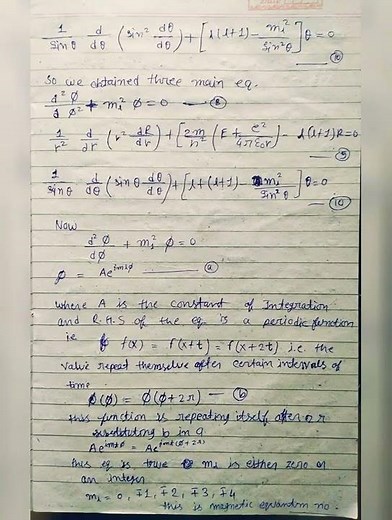 1/sinθ d/dθ (sin² dθ/dθ) + [l(l+1) - m_l²/sin²θ] θ = 0
(10)
So we obtained three main eq.
d²Ø/dØ² + m_l² Ø = 0 — (8)
1/r² d/dr (r² dR/dr) + [2m/h² (E + e²/4πε₀r) - l(l+1) R = 0
— (9)
1/sinθ d/dθ (sinθ dθ/dθ) + [l+(l+1) - m_l²/sin²θ] θ = 0
— (10)
Now
d²Ø/dØ + m_l² Ø = 0
Ø = Ae^(imlØ) — (a)
where A is the constant of Integration
and R.H.S of the eq is a periodic function
ie f(x) = f(x+t) = f(x+2t) i.e. the
value repeat themselve after certain intervals of
time.
Ø(Ø) = Ø(Ø+2π) — (b)
this function is repeating itself after 2π
substituting b in a
Ae^(imlØ) = Ae^(iml(Ø+2π))
this eq is true m_l is either zero or
an integer
m_l = 0, ∓1, ∓2, ∓3, ∓4
this is magnetic quantum no.